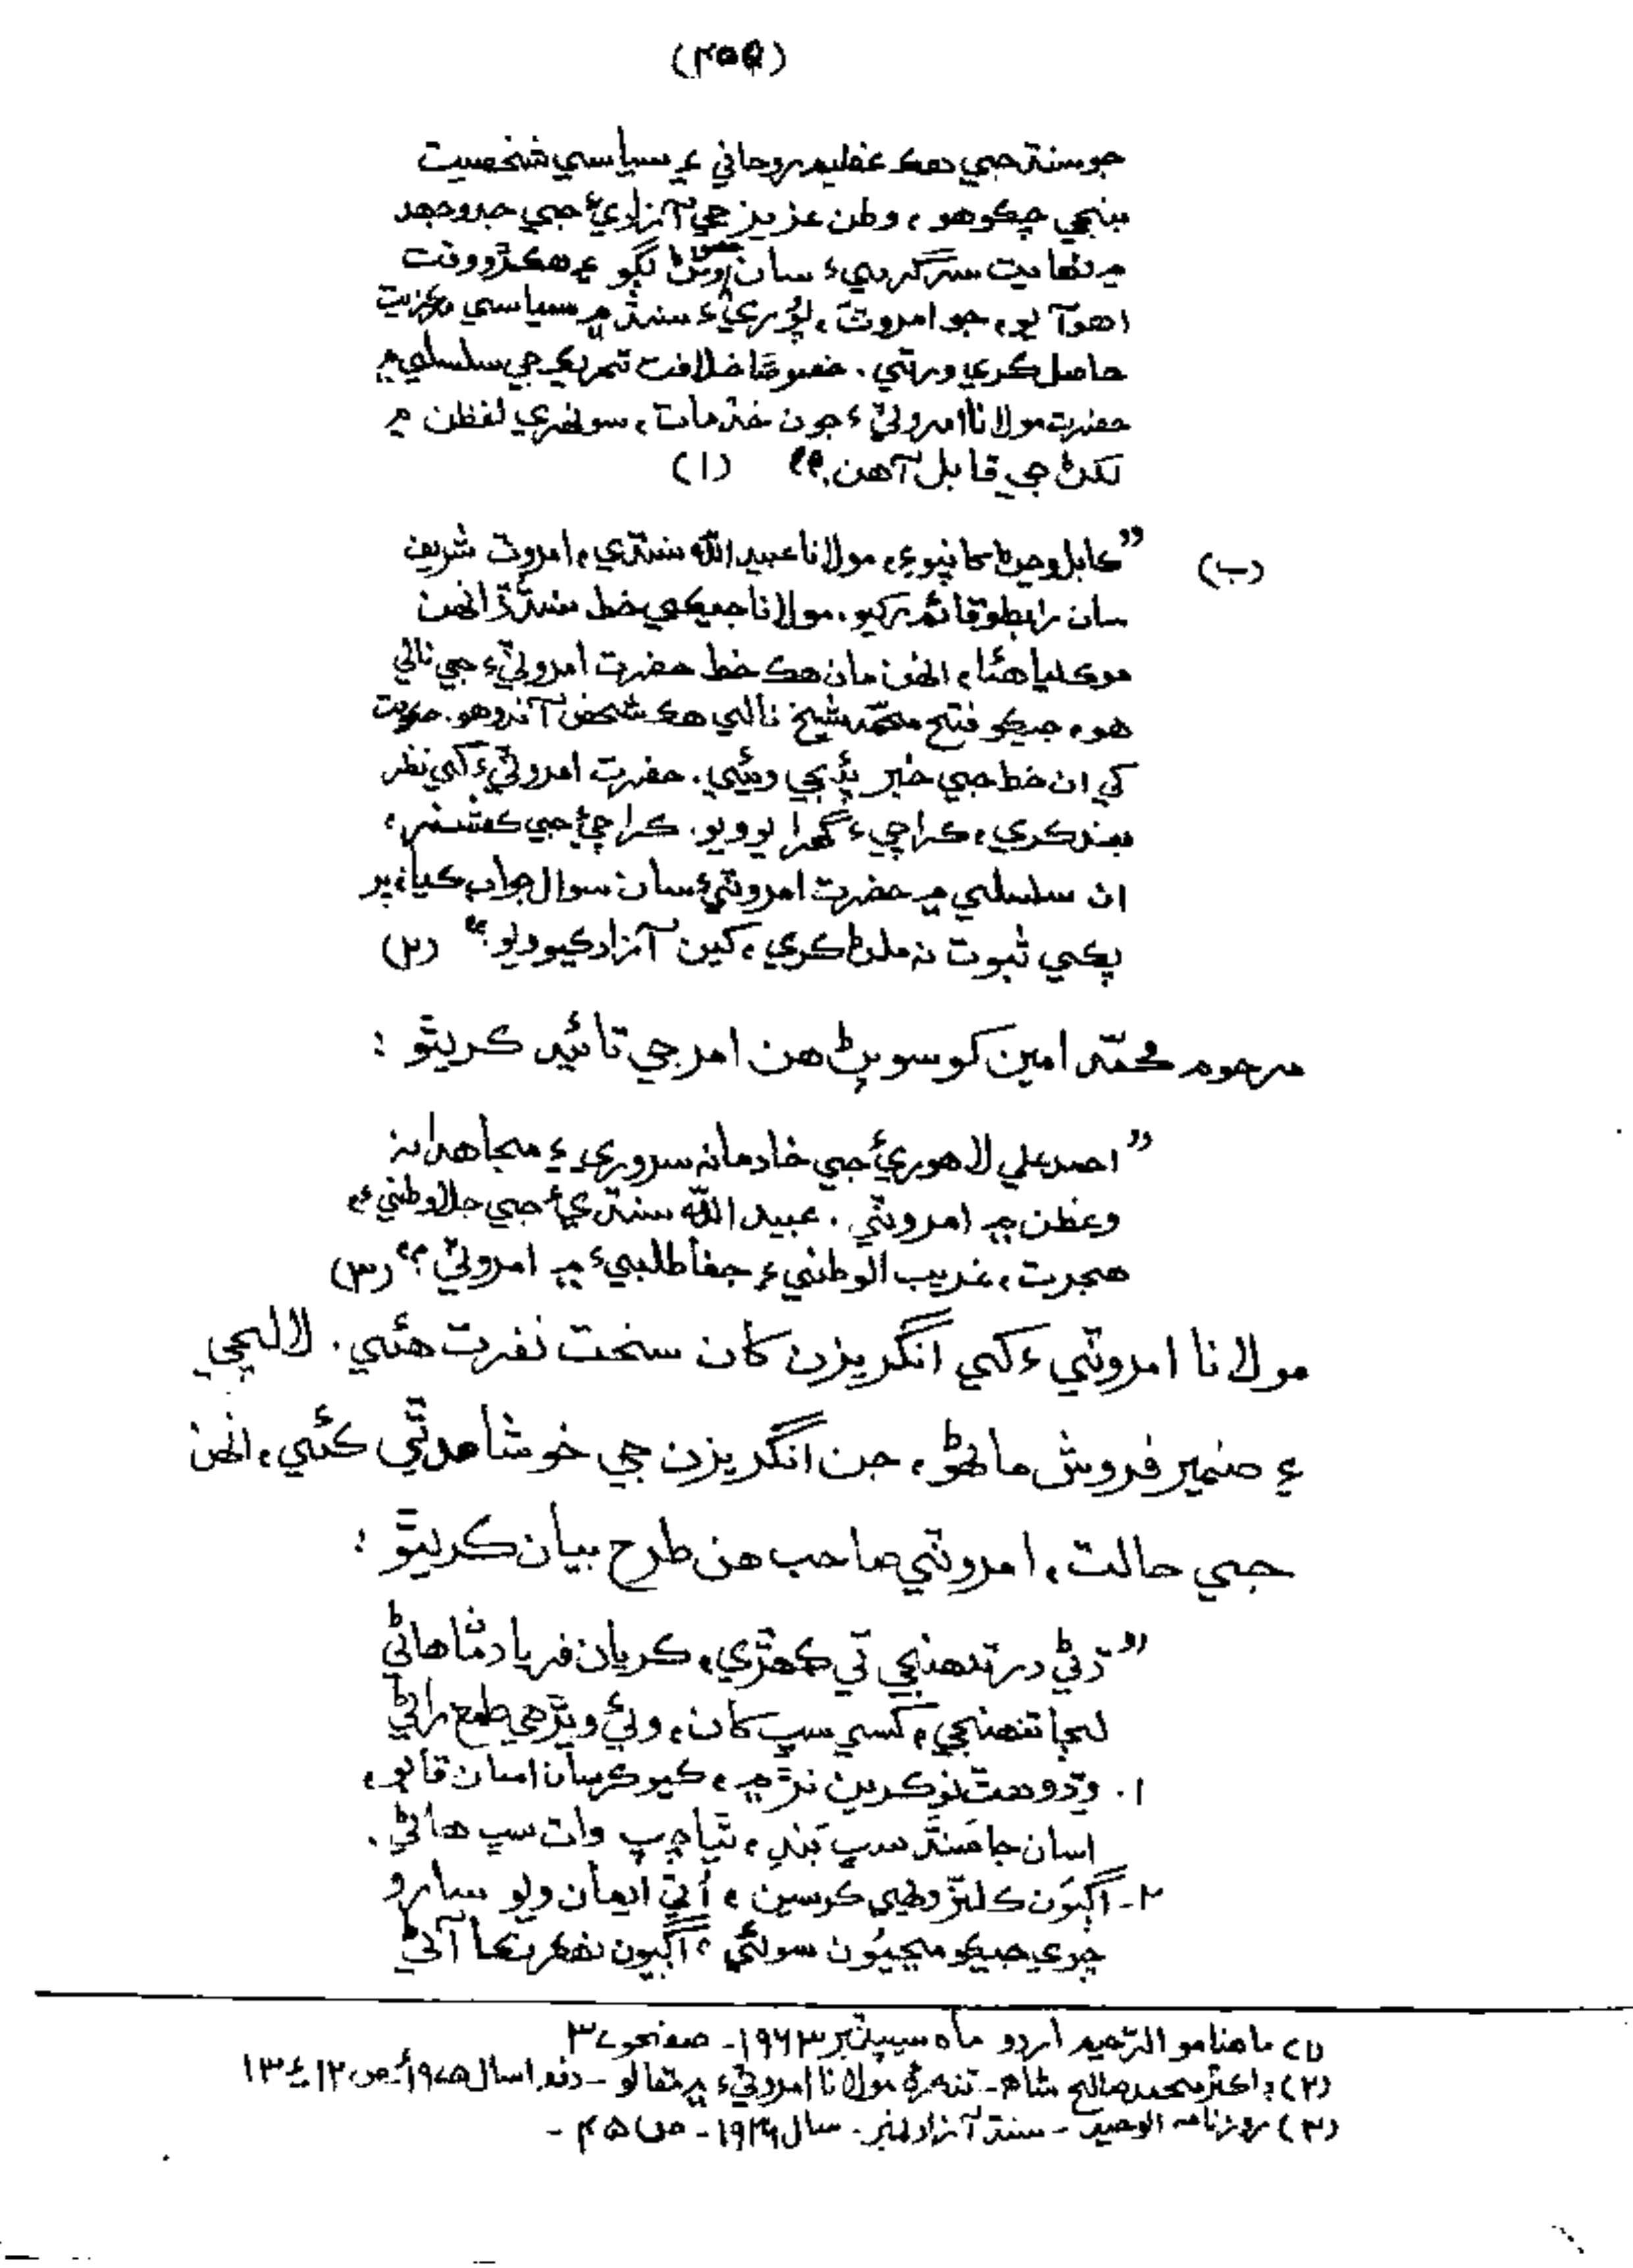 جو سنڌ جي هڪ عظيم روحاني ۽ سياسي شخصيت
بنجي چڪو هو، وطن عزيز جي آزاديءَ جي جدوجهد
۾ نهايت سرگرميءَ سان لڳو ۽ هڪڙو وقت
اهو آيو، جو امروٽ، پوري سنڌ ۾ سياسي مرڪزيت
حاصل ڪري ورتي. خصوصًا خلافت تحريڪ جي سلسلي ۾
حضرت مولانا امروٽيءَ جون خدمات، سونهري لفظن ۾
لکڻ جي قابل آهن." (۱)
(ب) "ڪابل وڃڻ کانپوءِ، مولانا عبيدالله سنڌي، امروٽ شريف
سان رابطو قائم رکيو. مولانا جيڪي خط سنڌ ڏانهن
موڪليا هئا، انهن مان هڪ خط حضرت امروٽيءَ جي نالي
هو، جيڪو فتح محمّد شيخ نالي هڪ شخص آندو هو. حڪومت
کي ان خط جي خبر پئجي ويئي. حضرت امروٽيءَ کي نظر
بند ڪري، ڪراچيءَ گهرايو ويو. ڪراچيءَ جي ڪمشنر،
ان سلسلي ۾ حضرت امروٽيءَ سان سوال جواب ڪيا، پر
پڪي ثبوت نہ ملڻ ڪري، کين آزاد ڪيو ويو." (۲)
مرحوم محمّد امين کوسو پڻ هن امر جي تائيد ڪريٿو :
"احمد علي لاهوريءَ جي خادمانہ سروري ۽ مجاهدانہ
وعظن ۾ امروٽي. عبيدالله سنڌيءَ جي جلاوطني ۽
هجرت، غريب الوطني ۽ جفاطلبيءَ ۾ امروٽي." (۳)
مولانا امروٽيءَ کي انگريزن کان سخت نفرت هئي. لالچي
۽ ضمير فروش ماڻهو، جن انگريزن جي خوشامد ٿي ڪئي، انهن
جي حالت، امروٽي صاحب هن طرح بيان ڪريٿو :
"ڌڻي در تنهنجي تي ڪهڙي، ڪريان فرياد مٿا هاڻي
لڄا تنهنجي، کسي سڀ کان، وئي ويڙهي طمع راڻي
۱. وڌو هٿ نوڪرين نڙ ۾، ڪيو ڪرسيان اسان قابو،
اسان جا سنڌ سڀ بَند، ٿيا چپ وات سڀ هاڻي.
۲- اڳيون ڪلٽر وٺي ڪرسين، ايمان ويو سارو
چوي جيڪو مڃيون سوئي، اڳيون آڻي
(۱) ماهنامو الرّحيم اردو ماہ سيپٽمبر ۱۹۶۳- صفحو ۳۷
(۲) ڊاڪٽر محمد صالح شاهہ- تذڪرہ مولانا امروٽيءَ پر مقالو - سال ۱۹۷۵ع ص ۱۲ ۽ ۱۳
(۳) روزنامہ الوحيد - سنڌ آزاد نمبر. سال ۱۹۳۶- ص ۴۵ -